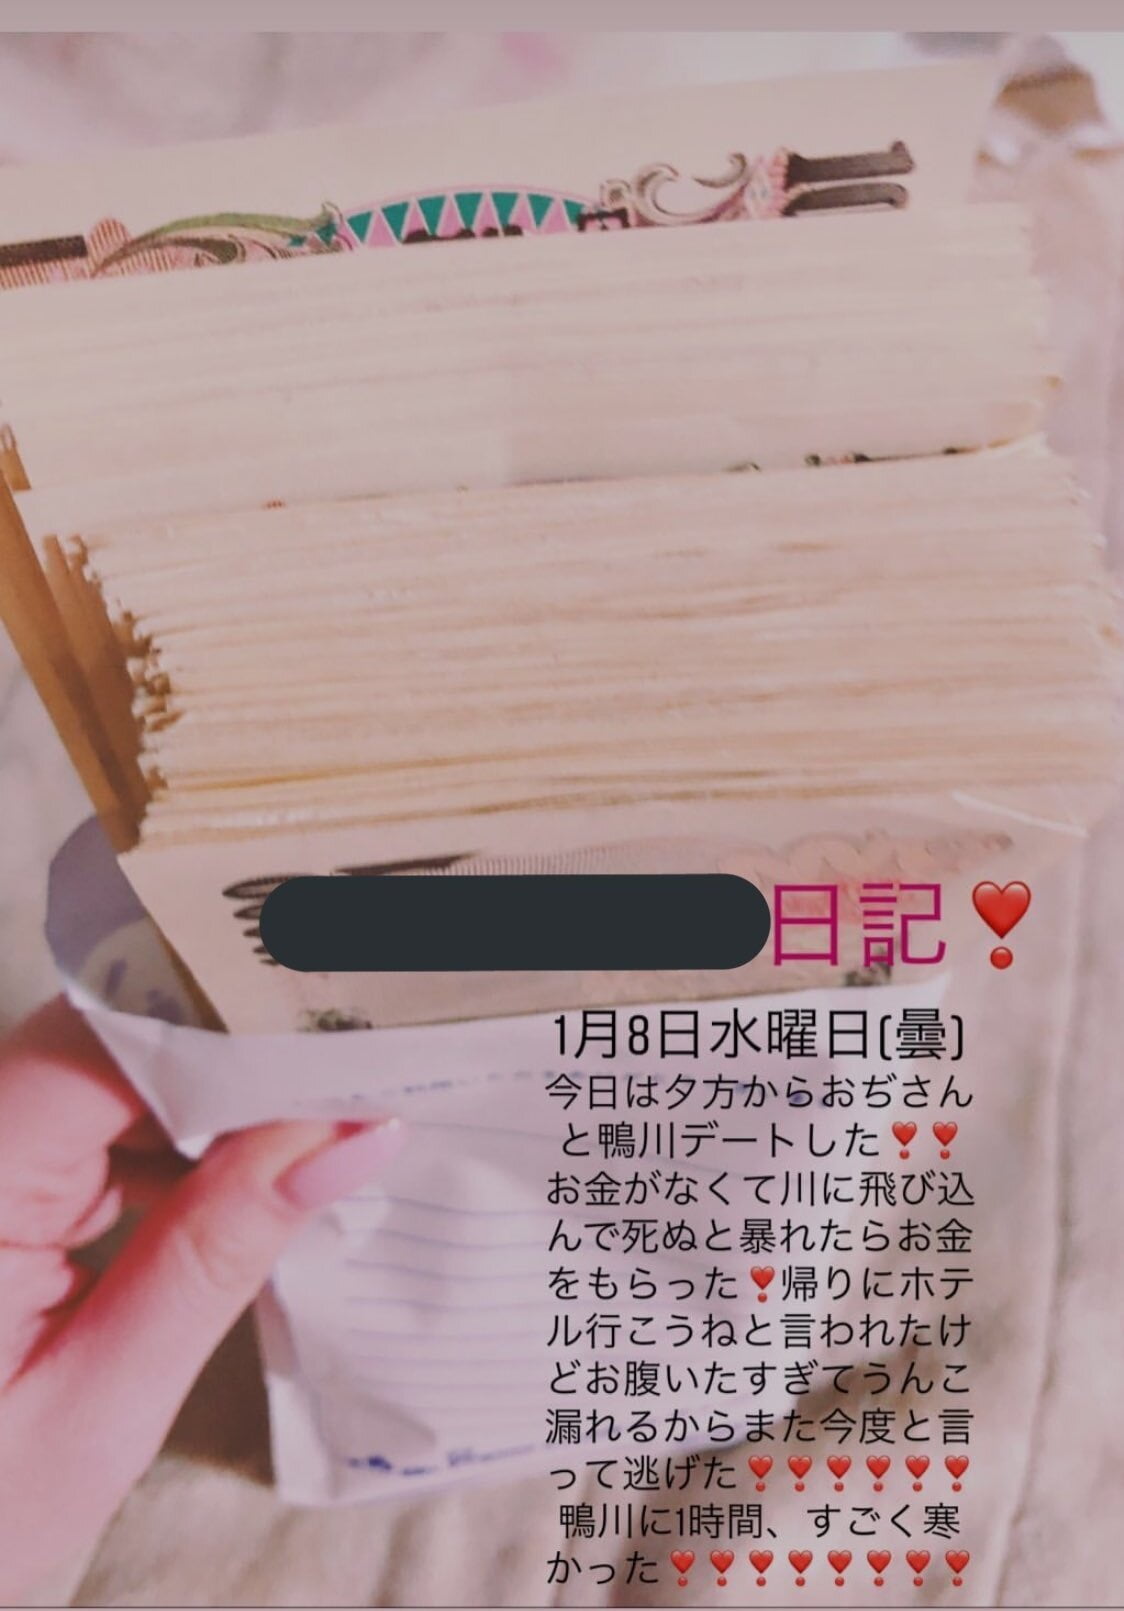 日記❣️
1月8日水曜日(曇)
今日は夕方からおぢさん
と鴨川デートした❣️❣️
お金がなくて川に飛び込
んで死ぬと暴れたらお金
をもらった❣️帰りにホテ
ル行こうねと言われたけ
どお腹いたすぎてうんこ
漏れるからまた今度と言
って逃げた❣️❣️❣️❣️❣️❣️
鴨川に1時間、すごく寒
かった❣️❣️❣️❣️❣️❣️❣️❣️